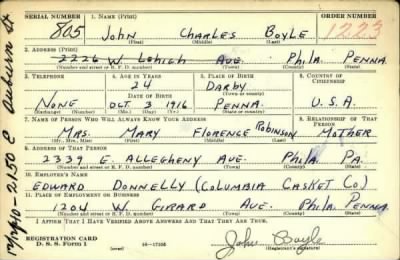 SERIAL NUMBER 1. NAME (Print) ORDER NUMBER
805 John Charles Boyle 1223
(First) (Middle) (Last)
2. ADDRESS (Print)
2226 W. Lehigh Ave. Phila. Penna.
(Number and street or R. F. D. number) (Town) (County) (State)
3. TELEPHONE 4. AGE IN YEARS 5. PLACE OF BIRTH 6. COUNTRY OF CITIZENSHIP
24 Darby
DATE OF BIRTH (Town or county)
None Oct. 3 1916 Penna. U.S.A.
(Exchange) (Number) (Mo.) (Day) (Yr.) (State or country)
7. NAME OF PERSON WHO WILL ALWAYS KNOW YOUR ADDRESS 8. RELATIONSHIP OF THAT PERSON
Mrs. Mary Florence Robinson Mother
(Mr., Mrs., Miss) (First) (Middle) (Last)
9. ADDRESS OF THAT PERSON
2339 E. Allegheny Ave. Phila. Pa.
(Number and street or R. F. D. number) (Town) (County) (State)
10. EMPLOYER'S NAME
Edward Donnelly (Columbia Casket Co)
11. PLACE OF EMPLOYMENT OR BUSINESS
1204 W. Girard Ave. Phila. Penna.
(Number and street or R. F. D. number) (Town) (County) (State)
I AFFIRM THAT I HAVE VERIFIED ABOVE ANSWERS AND THAT THEY ARE TRUE.
REGISTRATION CARD
D. S. S. Form 1 (over) 16—17105 John Boyle
(Registrant's signature)
2150 E Auburn St